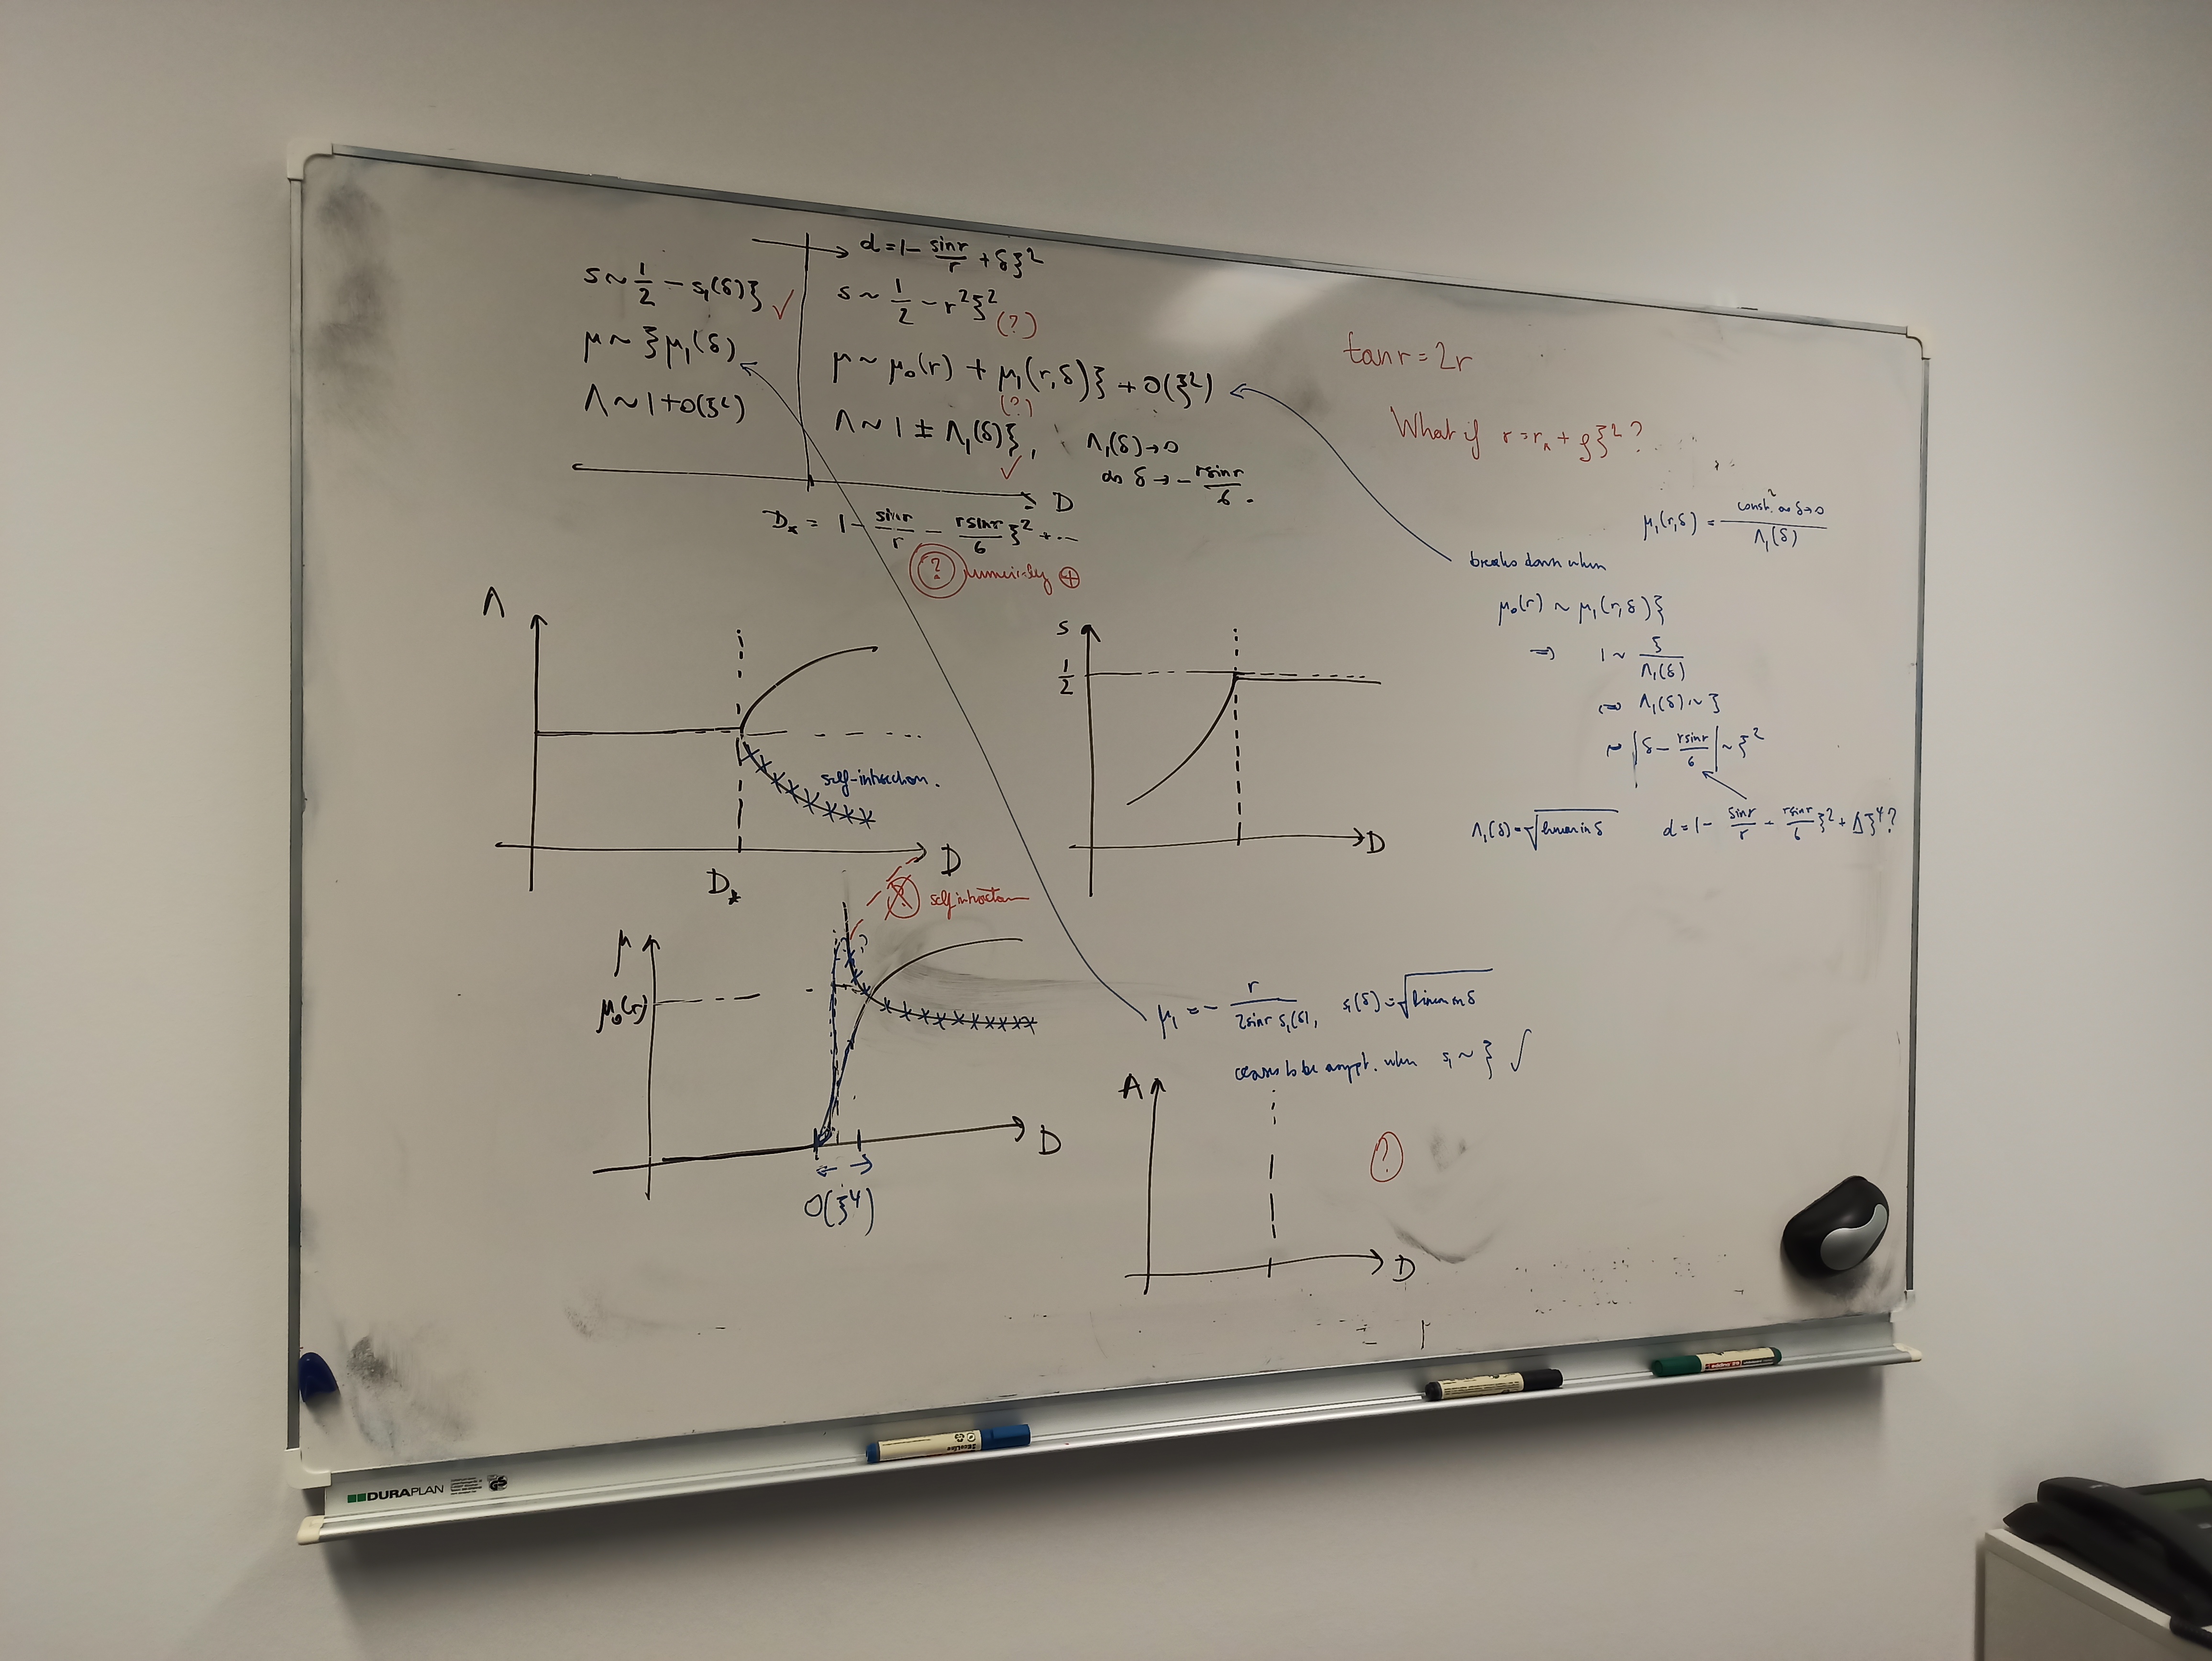 d = 1 - sin r / r + δξ²
s ~ 1/2 - s₁(δ)ξ ✓
s ~ 1/2 - r²ξ² (?)
μ ~ ξμ₁(δ)
μ ~ μ₀(r) + μ₁(r,δ)ξ + O(ξ²)
(?)
Λ ~ 1 + O(ξ²)
Λ ~ 1 ± Λ₁(δ)ξ, Λ₁(δ) → 0
✓ as δ → - r sin r / 6 .
D
D* = 1 - sin r / r - r sin r / 6 ξ² + ...
?
⊕
tan r = 2r
What if r = r + ρξ² ?
μ₁(r,δ) = const. as δ→0 / Λ₁(δ)
breaks down when
μ₀(r) ~ μ₁(r,δ)ξ
⇒ 1 ~ ξ / Λ₁(δ)
⇔ Λ₁(δ) ~ ξ
~ |δ - r sin r / 6| ~ ξ²
Λ₁(δ) = √linear in δ
d = 1 - sin r / r - r sin r / 6 ξ² + Δξ⁴ ?
Λ
self-intersection.
D
D*
s
1/2
D
? self intersection
μ
μ₀(r)
?
D
O(ξ⁴)
μ₁ = - r / 2 sin r s₁(δ), s₁(δ) = √linear in δ
ceases to be asympt. when s₁ ~ ξ ✓
A
?
D
DURAPLAN